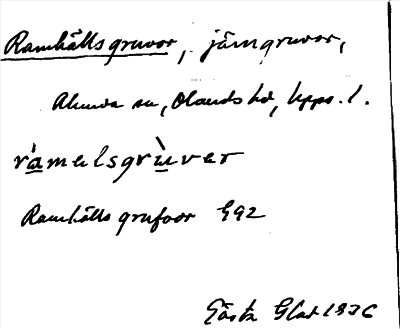 Ramhälls gruvor, järngruvor,
Alunda sn, Olands hd, Upps. l.
ràmelsgrùver
Ramhälls grufvor G92
Gösta 1936